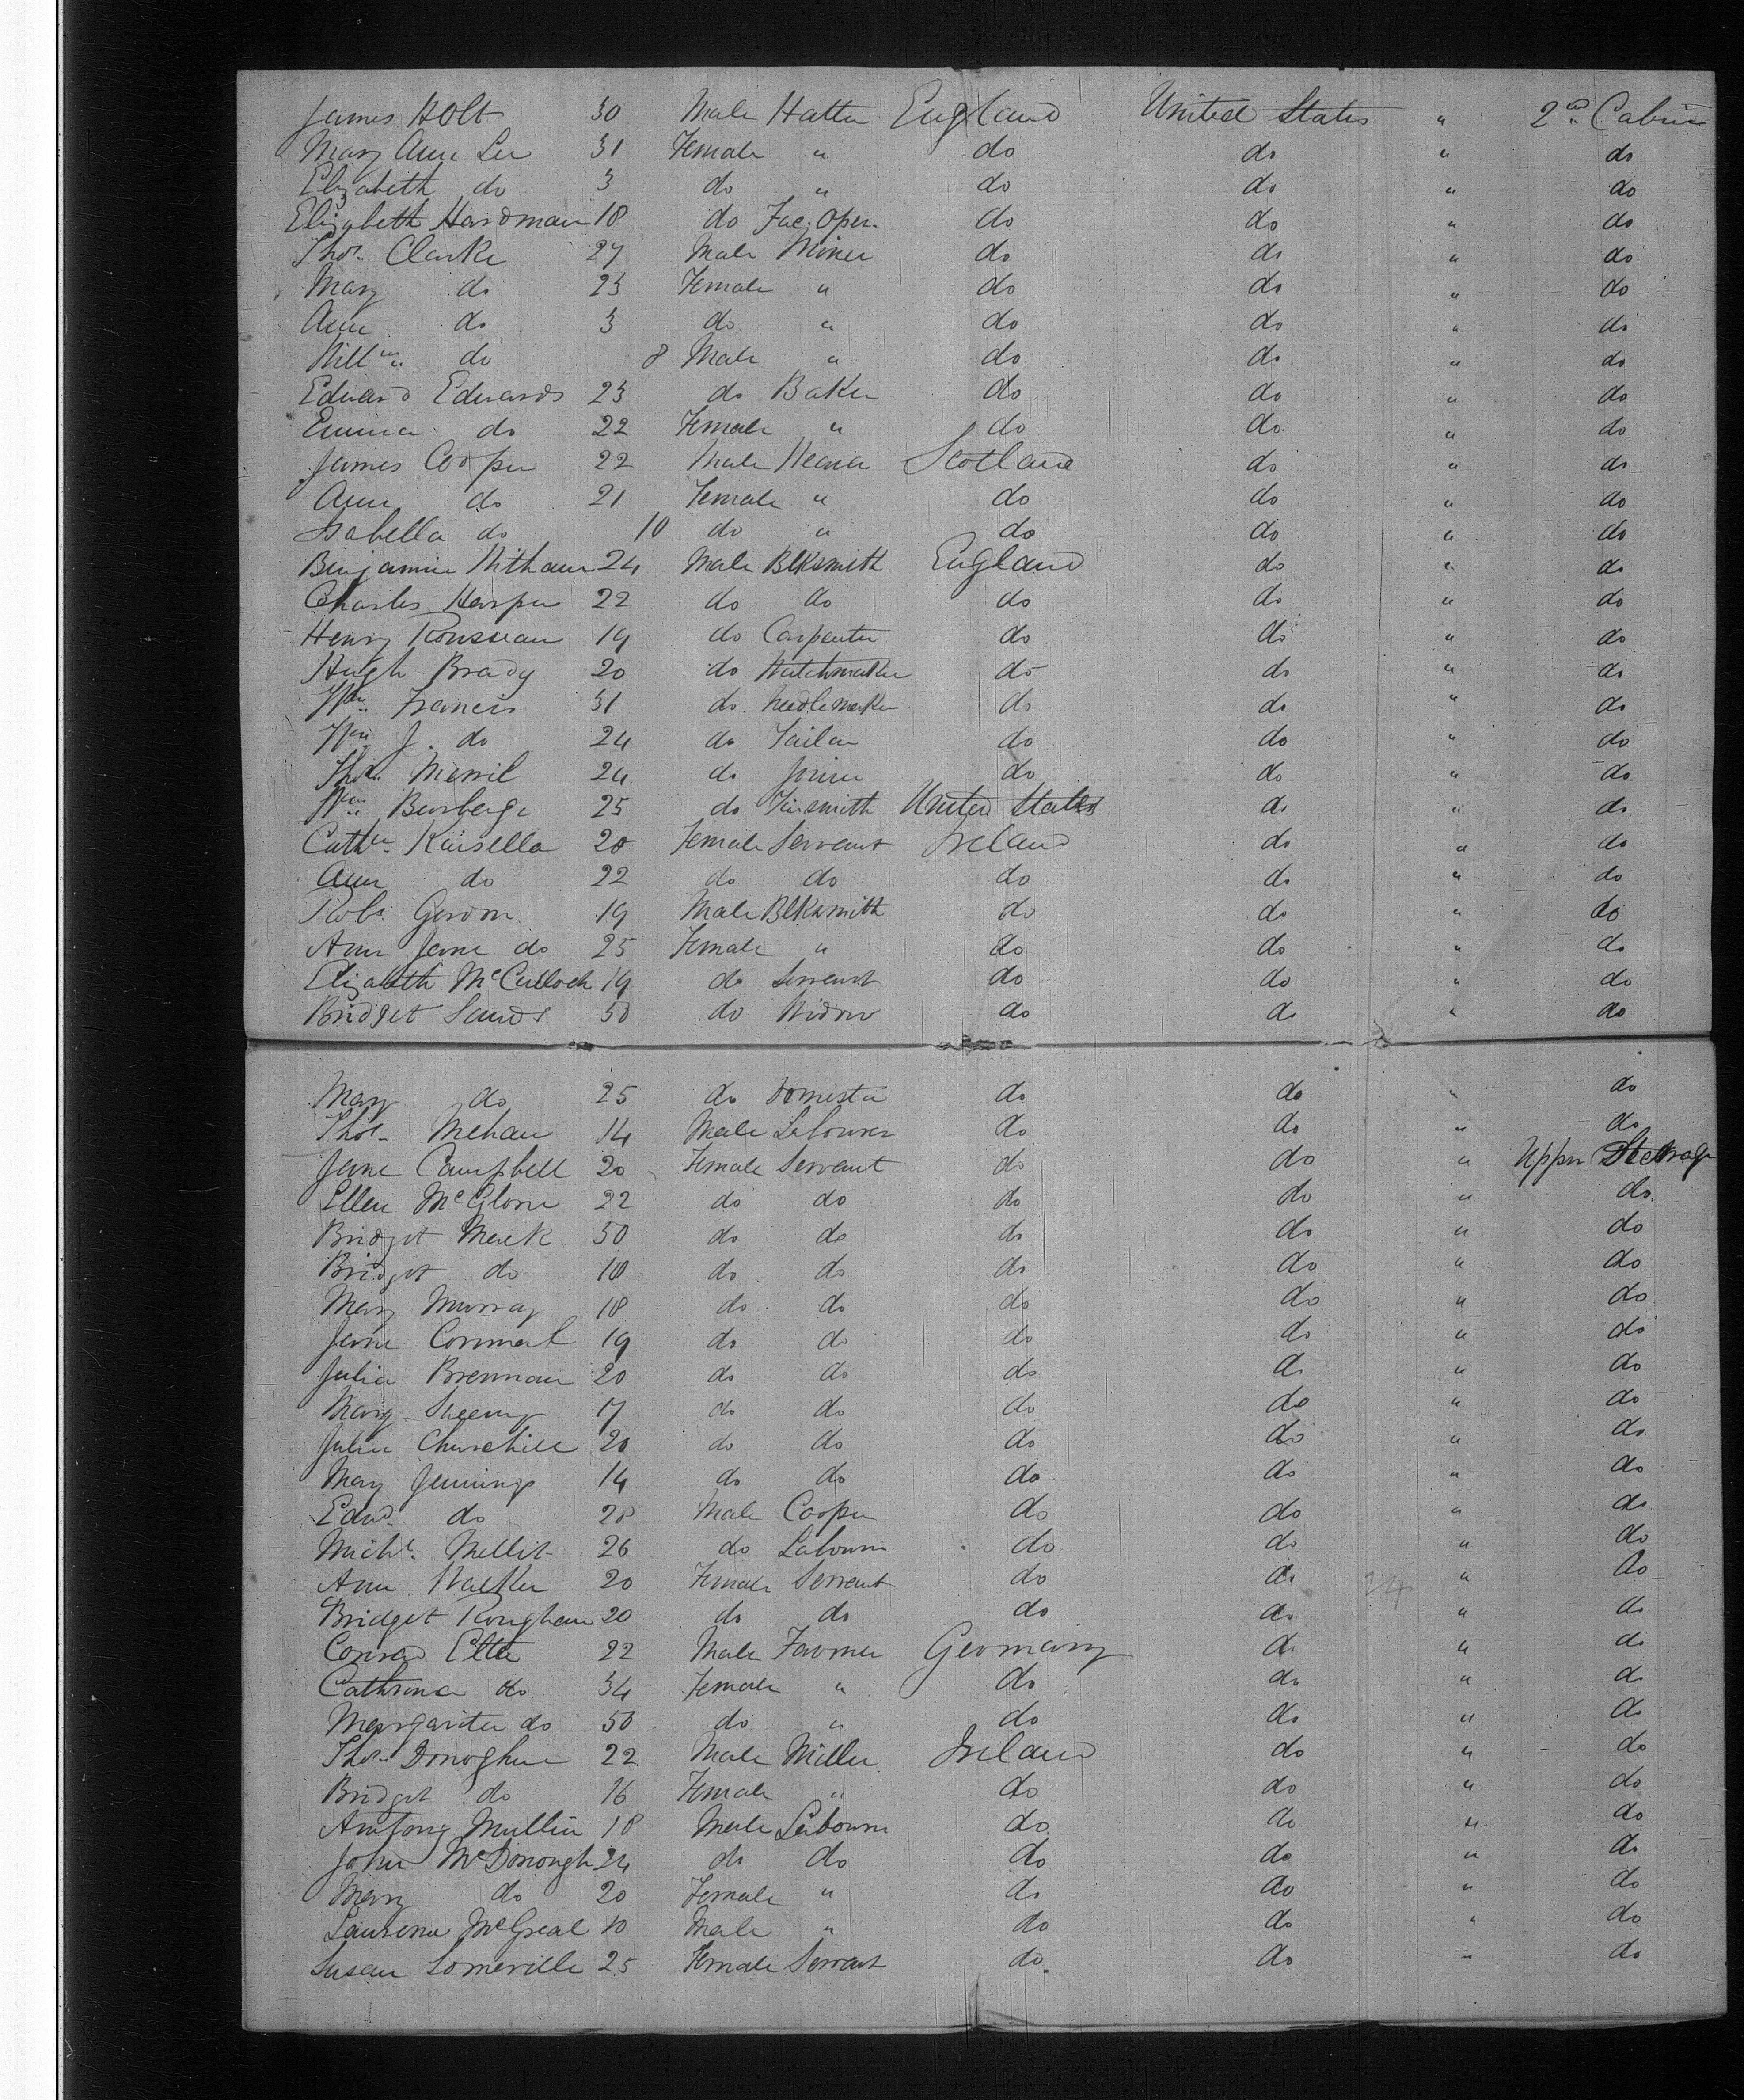 James Holt 30 Male Hatter England United States " 2nd Cabin
Mary Ann Lee 31 Female " do do " do
Elizabeth do 3 do " do do " do
Elizabeth Hardman 18 do Fac. Oper. do do " do
Thos. Clarke 27 Male Miner do do " do
Mary do 23 Female " do do " do
Ann do 3 do " do do " do
Willm. do 8 Male " do do " do
Edward Edwards 23 do Baker do do " do
Emma do 22 Female " do do " do
James Cooper 22 Male Weaver Scotland do " do
Ann do 21 Female " do do " do
Isabella do 10 do " do do " do
Benjamin Witham 24 Male Blksmith England do " do
Charles Harper 22 do do do do " do
Henry Rousseau 19 do Carpenter do do " do
Hugh Brady 20 do Watchmaker do do " do
Wm. Francis 31 do Needlemaker do do " do
Wm. J. do 24 do Tailor do do " do
Thos. Merril 24 do Joiner do do " do
Wm. Burberge 25 do Tinsmith United States do " do
Cathe. Kinsella 20 Female Servant Ireland do " do
Ann do 22 do do do do " do
Robt. Gordon 19 Male Blksmith do do " do
Ann Jane do 25 Female " do do " do
Elizabeth McCulloch 19 do Servant do do " do
Bridget Sands 50 do Widow do do " do
Mary do 25 do Domestic do do " do
Thos. Mehan 14 Male Labourer do do " do
Jane Campbell 20 Female Servant do do " Upper Steerage
Ellen McGlone 22 do do do do " do
Bridget Meek 50 do do do do " do
Bridget do 18 do do do do " do
Mary Murray 18 do do do do " do
Jane 19 do do do do " do
Julia Brennan 20 do do do do " do
Mary Sheeny 17 do do do do " do
Julia Churchill 20 do do do do " do
Mary Jennings 14 do do do do " do
Edwd. do 28 Male Cooper do do " do
Michl. Mellit 26 do Labourer do do " do
Ann Walker 20 Female Servant do do " do
Bridget Roughan 20 do do do do " do
Conrad Etter 22 Male Farmer Germany do " do
Cathrina do 34 Female " do do " do
Margarita do 50 do " do do " do
Thos. Donoghue 22 Male Miller Ireland do " do
Bridget do 16 Female " do do " do
Antony Mullin 18 Male Labourer do do " do
John McDonough 24 do do do do " do
Mary do 20 Female " do do " do
Laurence McGreal 10 Male " do do " do
Susan Somerville 25 Female Servant do do " do